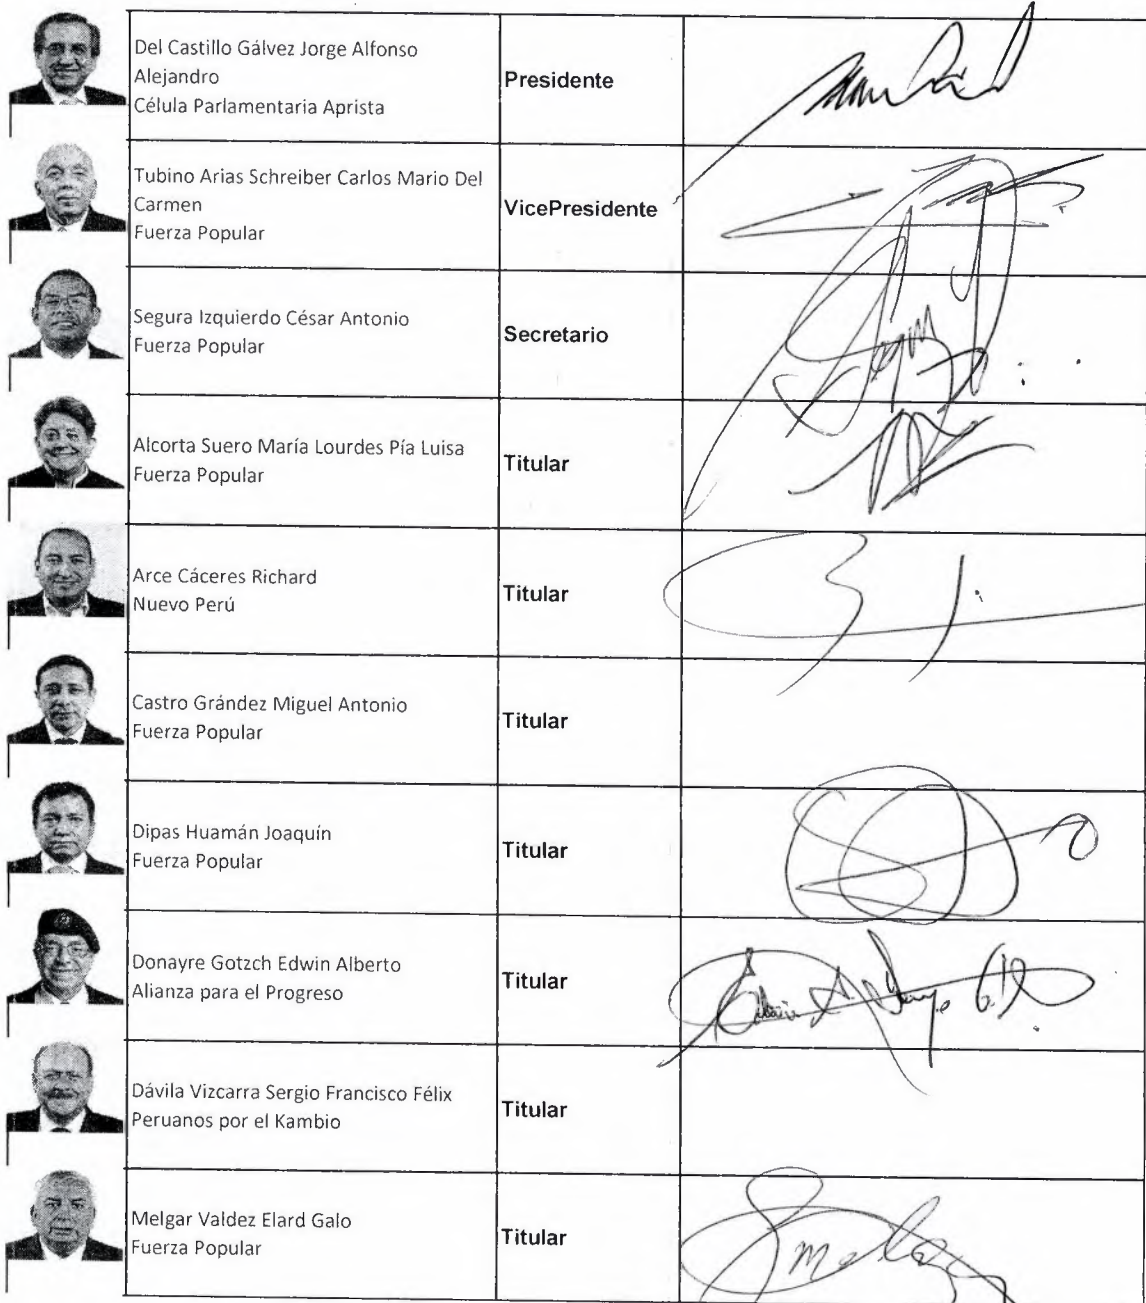 Del Castillo Gálvez Jorge Alfonso
Alejandro
Célula Parlamentaria Aprista
Presidente
Tubino Arias Schreiber Carlos Mario Del
Carmen
Fuerza Popular
VicePresidente
Segura Izquierdo César Antonio
Fuerza Popular
Secretario
Alcorta Suero María Lourdes Pía Luisa
Fuerza Popular
Titular
Arce Cáceres Richard
Nuevo Perú
Titular
Castro Grández Miguel Antonio
Fuerza Popular
Titular
Dipas Huamán Joaquín
Fuerza Popular
Titular
Donayre Gotzch Edwin Alberto
Alianza para el Progreso
Titular
Dávila Vizcarra Sergio Francisco Félix
Peruanos por el Kambio
Titular
Melgar Valdez Elard Galo
Fuerza Popular
Titular